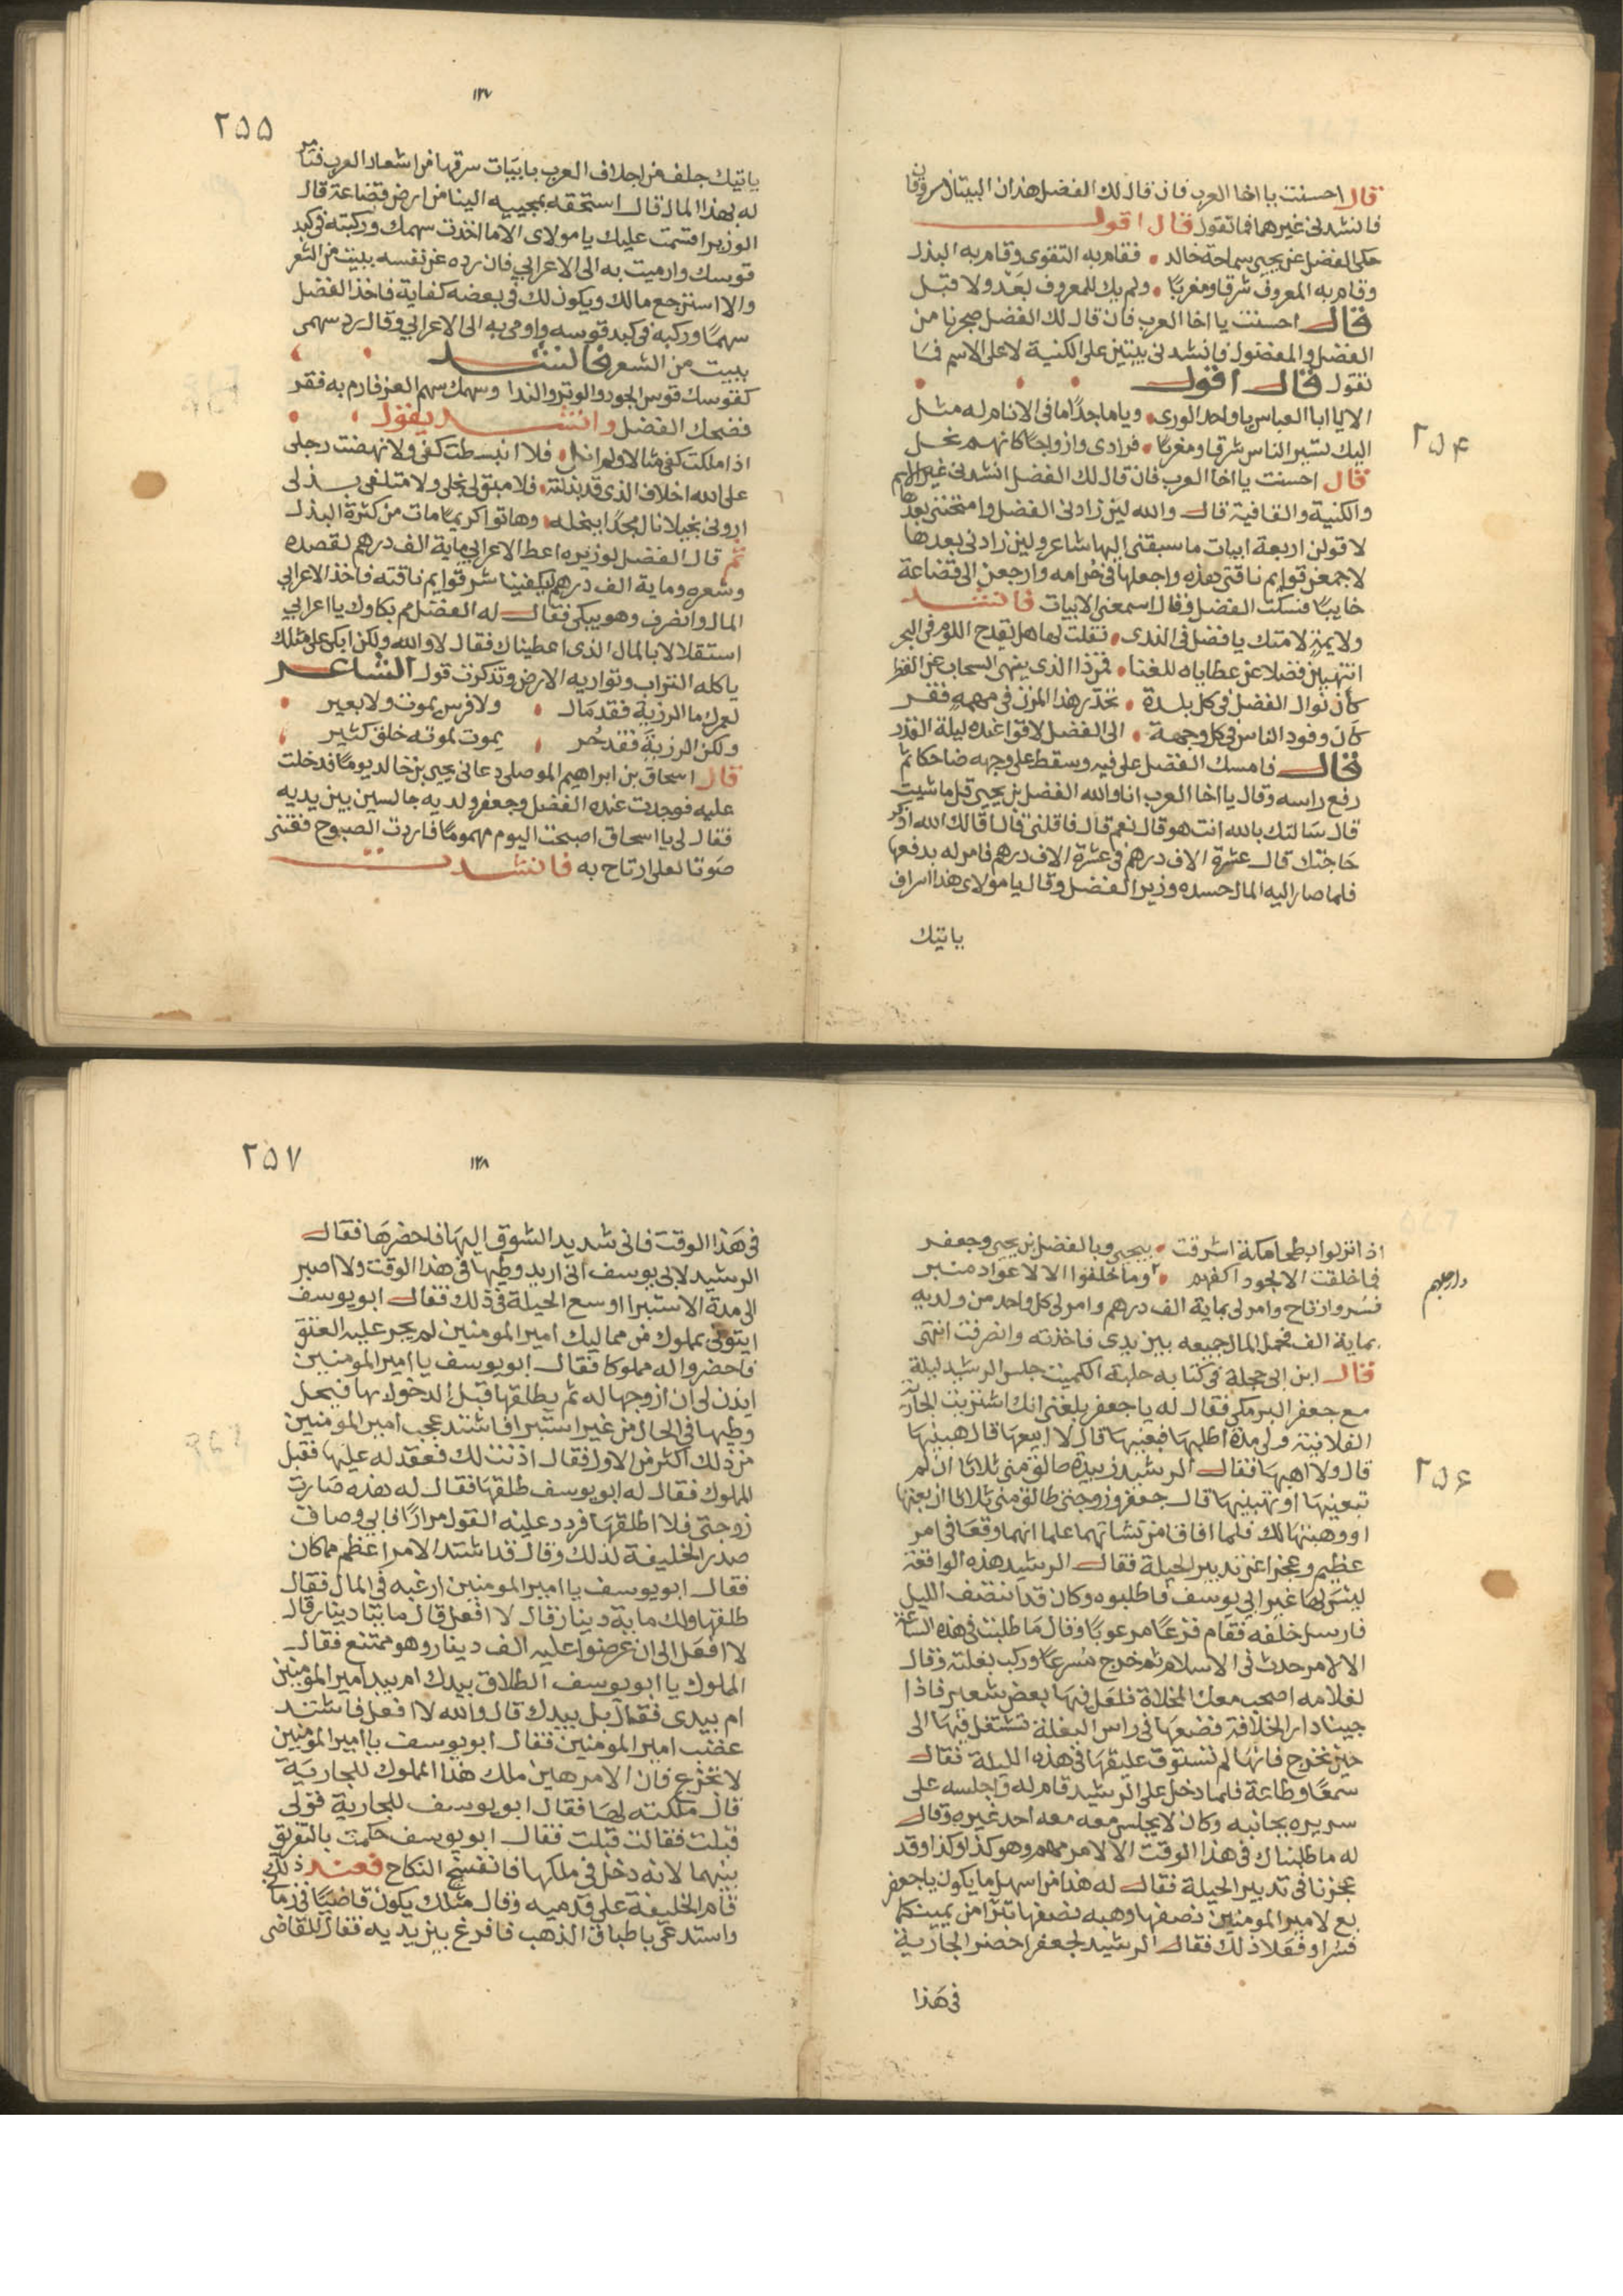 قال احسنت يا اخا العرب فان قال لك الفضل هذان البيتان مسروقان
فانشدنى غيرهما فما تقول قال اقول
حكى الفضل عن يحيى سماحة خالد • فقام به التقوى وقام به البذل
وقام به المعروف شرقا ومغربًا • ولم يك للمعروف بعد ولا قبل
قال احسنت يا اخا العرب فان قال لك الفضل ضجرنا من
الفضل والمفضول فانشدنى بيتين على الكنية لا على الاسم فما
تقول قال اقول
الا يا ابا العباس يا واحد الورى • ويا ماجدًا ما فى الانام له مثل
٢٥٤
اليك تسير الناس شرقا ومغربًا • فرادى وازواجًا كانهم نحل
قال احسنت يا اخا العرب فان قال لك الفضل انشدنى غير الاسم
والكنية والقافية قال والله لين زادنى الفضل وامتحننى بعدها
لا قولن اربعة ابيات ما سبقنى اليها شاعر ولين زادنى بعدها
لاجمعن قوايم ناقتى هذه واجعلها فى حزامه وارجعن الى قضاعة
خايبًا فسكت الفضل وقال اسمعنى الابيات فانشد
ولايمة لامتك يا فضل فى الندى • فقلت لها هل يقدح اللوم فى البحر
اتنهين فضلا عن عطاياه للغنا • فمن ذا الذى ينهى السحاب عن القطر
كأن نوال الفضل فى كل بلدة • تحدر هذا المزن فى مهمه فقر
كأن وفود الناس فى كل وجهة • الى الفضل لاقوا عنده ليلة القدر
قال فامسك الفضل على فيه وسقط على وجهه ضاحكا ثم
رفع راسه وقال يا اخا العرب انا والله الفضل بن يحيى قل ما شيت
قال سالتك بالله انت هو قال نعم قال فاقلنى قال اقالك الله اذكر
حاجتك قال عشرة الاف درهم فى عشرة الاف درهم فامر له بدفعها
فلما صار اليه المال حسده وزير الفضل وقال يا مولاى هذا اسراف
ياتيك
١٢٧
٢٥٥
ياتيك جلف من اجلاف العرب بابيات سرقها من اشعار العرب فتامر
له بهذا المال قال استحقه بمجييه الينا من ارض قضاعة قال
الوزير اقسمت عليك يا مولاى الا ما اخذت سهمك وركبته فى كبد
قوسك وارميت به الى الاعرابي فان رده عن نفسه ببيت من الشعر
والا استرجع مالك ويكون لك فى بعضه كفاية فاخذ الفضل
سهمًا وركبه فى كبد قوسه واومى به الى الاعرابي وقال رد سهمى
ببيت من الشعر فانشد
كقوسك قوس الجود والوتر والندا وسهمك سهم العز فارم به فقر
فضحك الفضل وانشد يقول
اذا ملكت كفى منالا ولم انل • فلا انبسطت كفى ولا نهضت رجلى
على الله اخلاف الذى قد بذلته • فلا مبق لى بخلى ولا متلفى بذلى
ارونى بخيلا نال مجدًا ببخله • وهاتوا كريمًا مات من كثرة البذل
ثم قال الفضل لوزيره اعط الاعرابي ماية الف درهم لقصده
وشعره وماية الف درهم ليكفينا شر قوايم ناقته فاخذ الاعرابي
المال وانصرف وهو يبكى فقال له الفضل مم بكاوك يا اعرابي
استقلالا بالمال الذى اعطيناك فقال لا والله ولكن ابكى على مثلك
ياكله التراب وتواريه الارض وتذكرت قول الشاعر
لعمرك ما الرزية فقد مال • ولا فرس يموت ولا بعير
ولكن الرزية فقد حُر • يموت لموته خلق كثير
قال اسحاق بن ابراهيم الموصلى دعانى يحيى بن خالد يومًا فدخلت
عليه فوجدت عنده الفضل وجعفر ولديه جالسين بين يديه
فقال لى يا اسحاق اصبحت اليوم مهمومًا فاردت الصبوح فغننى
صوتا لعلى ارتاح به فانشدت
اذا نزلوا بطحا مكة اشرقت • بيحيى وبالفضل بن يحيى وجعفر
فما خلقت الا لجود اكفهم • وما خلقوا الا لاعواد منبر
وارجلهم
فسُر وارتاح وامر لى بماية الف درهم وامر لى كل واحد من ولديه
بماية الف فحمل المال جميعه بين يدى فاخذته وانصرفت انتهى
قال ابن ابى حجلة فى كتابه حلبة الكميت جلس الرشيد ليلة
مع جعفر البرمكى فقال له يا جعفر بلغنى انك اشتريت الجارية
الفلانية ولى مدة اطلبها فبعنيها قال لا ابيعها قال هبنيها
قال ولا اهبها فقال الرشيد زبيدة طالق منى ثلاثا ان لم
٢٥٦
تبعنيها او تهبنيها قال جعفر وزوجتى طالق منى ثلاثا ان بعتها
او وهبتها لك فلما افاقا من نشاتهما علما انهما وقعا فى امر
عظيم وعجزا عن تدبير الحيلة فقال الرشيد هذه الواقعة
ليس لها غير ابى يوسف فاطلبوه وكان قد انتصف الليل
فارسل خلفه فقام فزعًا مرعوبًا وقال ما طلبت فى هذه الساعة
الا لامر حدث فى الاسلام ثم خرج مسرعًا وركب بغلته وقال
لغلامه اصحب معك المخلاة فلعل فيها بعض شعير فاذا
جينا دار الخلافة فضعها فى راس البغلة تشتغل فيها الى
حين نخرج فانها لم تستوف عليقها فى هذه الليلة فقال
سمعًا وطاعة فلما دخل على الرشيد قام له واجلسه على
سريره بجانبه وكان لا يجلس معه معه احد غيره وقال
له ما طلبناك فى هذا الوقت الا لامر مهم وهو كذا وكذا وقد
عجزنا فى تدبير الحيلة فقال له هذا من اسهل ما يكون يا جعفر
بع لامير المومنين نصفها وهبه نصفها تبرّا من يمينكما
فسُرا وفعلا ذلك فقال الرشيد لجعفر احضر الجارية
فى هذا
١٢٨
٢٥٧
فى هذا الوقت فانى شديد الشوق اليها فاحضرها فقال
الرشيد لابى يوسف انى اريد وطيها فى هذا الوقت ولا اصبر
الى مدة الاستبرا اوسع الحيلة فى ذلك فقال ابو يوسف
ايتونى بمملوك من مماليك امير المومنين لم يجر عليه العتق
فاحضروا له مملوكا فقال ابو يوسف يا امير المومنين
ايذن لى ان ازوجها له ثم يطلقها قبل الدخول بها فيحل
وطيها فى الحال من غير استبرا فاشتد عجب امير المومنين
من ذلك اكثر من الاول فقال اذنت لك فعقد له عليها فقبل
المملوك فقال له ابو يوسف طلقها فقال له هذه صارت
زوجتى فلا اطلقها فردد عليه القول مرارًا فابى وضاق
صدر الخليفة لذلك وقال قد اشتد الامر اعظم مما كان
فقال ابو يوسف يا امير المومنين ارغبه فى المال فقال
طلقها ولك ماية دينار قال لا افعل قال مايتا دينار قال
لا افعل الى ان عرضوا عليه الف دينار وهو ممتنع فقال
المملوك يا ابو يوسف الطلاق بيدك ام بيد امير المومنين
ام بيدى فقال بل بيدك قال والله لا افعل فاشتد
غضب امير المومنين فقال ابو يوسف يا امير المومنين
لا تجزع فان الامر هين ملك هذا المملوك للجارية
قال ملكته لها فقال ابو يوسف للجارية قولى
قبلت فقالت قبلت فقال ابو يوسف حكمت بالتفريق
بينهما لانه دخل فى ملكها فانفسخ النكاح فعند ذلك
قام الخليفة على قدميه وقال مثلك يكون قاضيًا فى زمانى
واستدعى باطباق الذهب فافرغ بين يديه فقال للقاضى